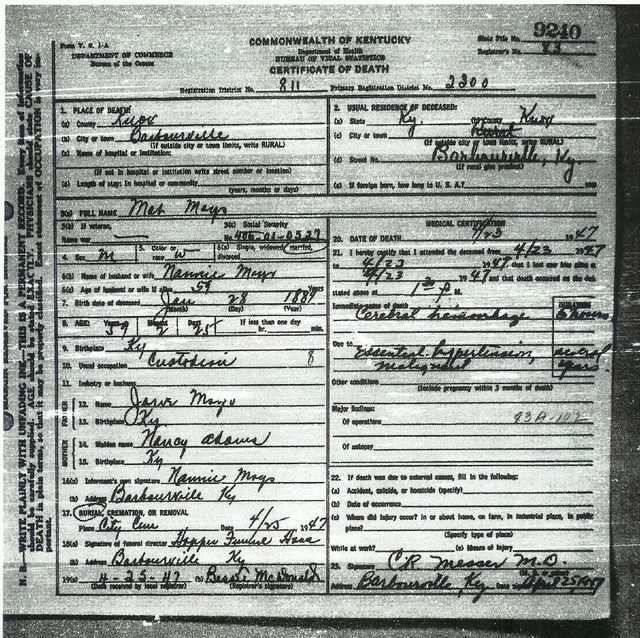 9240
Form V. S. 1-A
COMMONWEALTH OF KENTUCKY
State File No.
DEPARTMENT OF COMMERCE
Bureau of the Census
Department of Health
BUREAU OF VITAL STATISTICS
Registrar's No. 83
CERTIFICATE OF DEATH
Registration District No. 811 Primary Registration District No. 2300
1. PLACE OF DEATH:
(a) County Knox
(b) City or town Barbourville
(If outside city or town limits, write RURAL)
(c) Name of hospital or institution:
(If not in hospital or institution write street number or location)
(d) Length of stay: In hospital or community
(years, months or days)
2. USUAL RESIDENCE OF DECEASED:
(a) State Ky. (b) County Knox
(c) City or town Rural
(If outside city or town limits, write RURAL)
(d) Street No. Barbourville, Ky.
(If rural give precinct)
(e) If foreign born, how long in U. S. A.?
3(a) FULL NAME Mat Mays
3(b) If veteran,
Name war
3(c) Social Security
No. 406-01-0527
4. Sex M 5. Color or race W 6(a) Single, widowed, married, divorced
6(b) Name of husband or wife Nannie Mays
6(c) Age of husband or wife if alive 59 Years
7. Birth date of deceased Jan 28 1889
(Month) (Day) (Year)
8. AGE: Years Months Days If less than one day
59 2 25 hr. min.
9. Birthplace Ky
10. Usual occupation Custodian 8
11. Industry or business
FATHER
12. Name Jarve Mays
13. Birthplace Ky
MOTHER
14. Maiden name Nancy Adams
15. Birthplace Ky
16(a) Informant's own signature Nannie Mays
(b) Address Barbourville Ky
17. BURIAL, CREMATION, OR REMOVAL
Place City Cem Date 4/25, 1947
18(a) Signature of funeral director Hopper Funeral Home
(b) Address Barbourville Ky
19(a) 4-25-47 (b) Bessie McDonald
(Date received by local registrar) (Registrar's signature)
MEDICAL CERTIFICATION
20. DATE OF DEATH 4/23 1947
21. I hereby certify that I attended the deceased from 4/23 1947
to 4/23 1947 that I last saw him alive on
4/23 1947 and that death occurred on the date
stated above at P. M.
Immediate cause of death
Cerebral hemorrhage
DURATION
hours
Due to Essential hypertension, several
malignant years
Other conditions
(Include pregnancy within 3 months of death)
Major findings:
Of operations 83A-102
Of autopsy
22. If death was due to external causes, fill in the following:
(a) Accident, suicide, or homicide (specify)
(b) Date of occurrence
(c) Where did injury occur? in or about home, on farm, in industrial place, in public place?
(Specify type of place)
While at work? (e) Means of injury
23. Signature CR Messer M.D.
Address Barbourville Ky Date signed Apr 25 1947
N. B.—WRITE PLAINLY WITH UNFADING INK—THIS IS A PERMANENT RECORD.